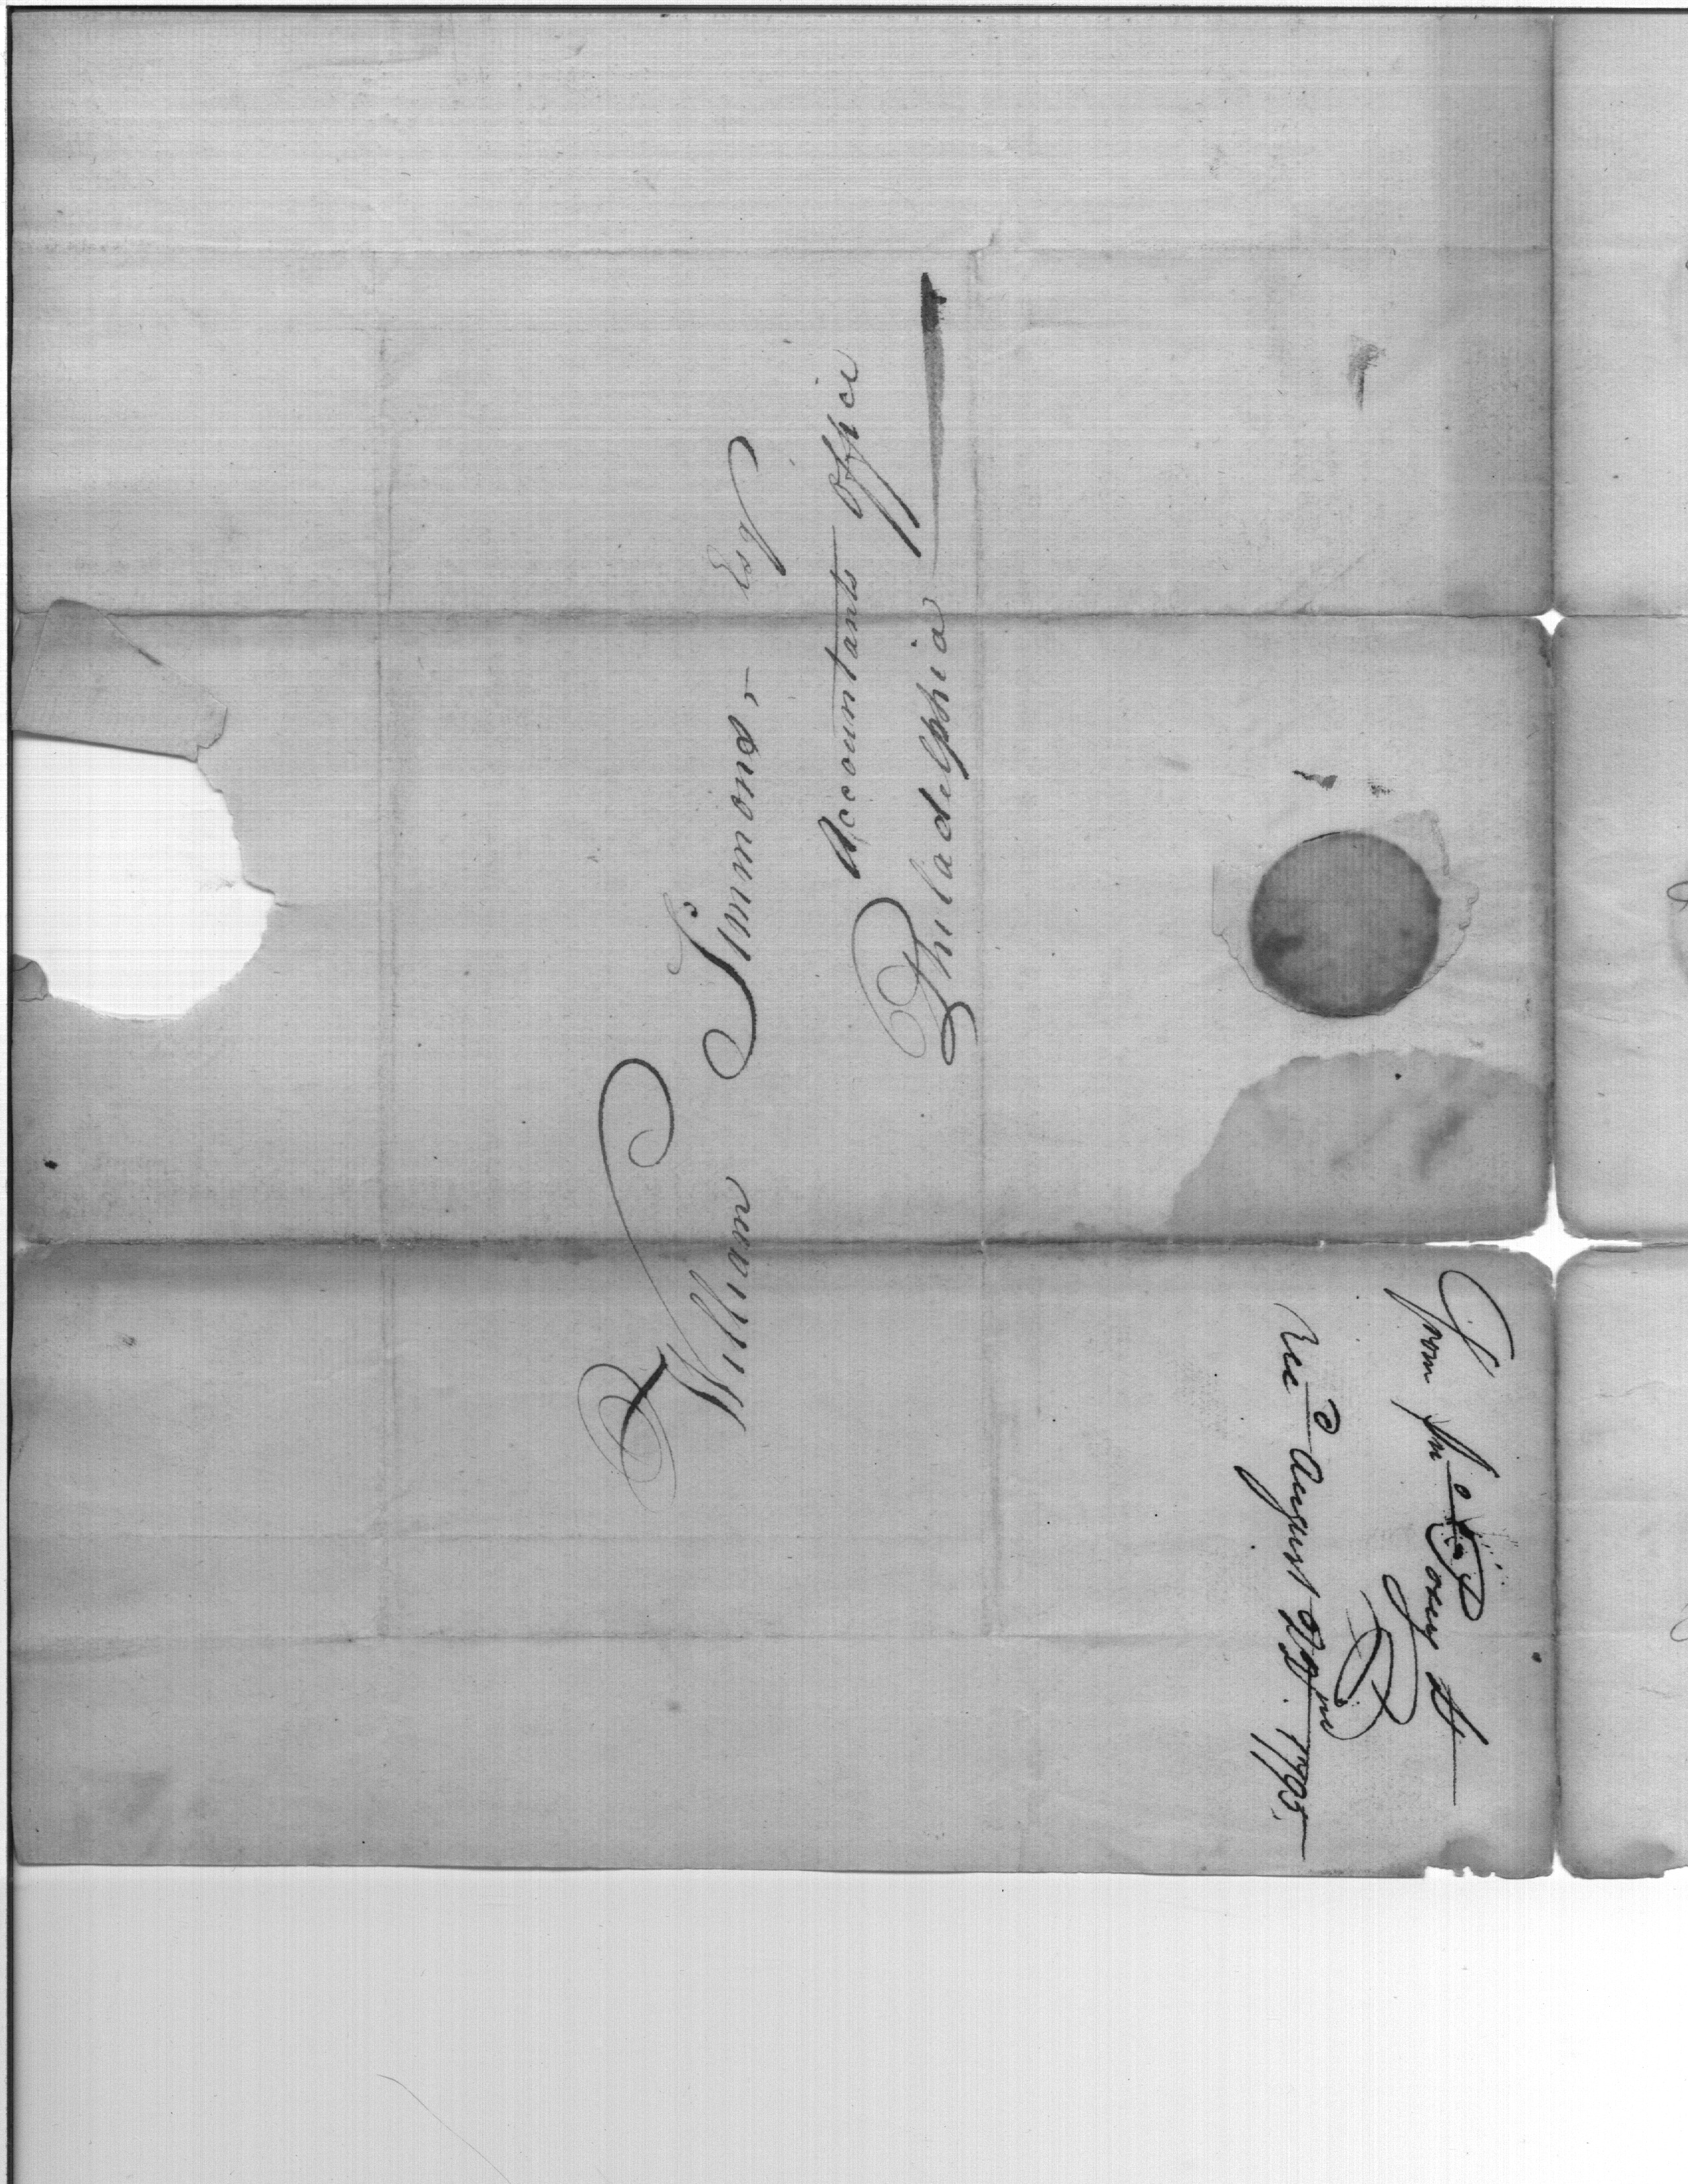 William Simmons, Esq
Accountants Office
Philadelphia
From Jno
Rec.d August 22nd. 1795